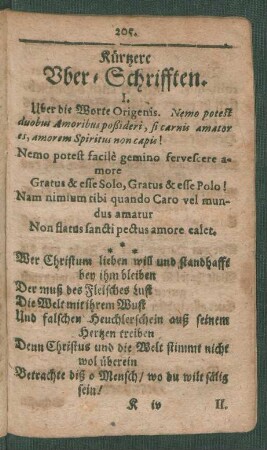 205.
Kürtzere
Vber-Schrifften.
I.
Uber die Worte Origenis. Nemo potest
duobus Amoribus possideri, si carnis amator
es, amorem Spiritus non capis!
Nemo potest facilè gemino fervescere a-
more
Gratus & esse Solo, Gratus & esse Polo!
Nam nimium tibi quando Caro vel mun-
dus amatur
Non flatus sancti pectus amore calet.
* * *
Wer Christum lieben will und standhafft
bey ihm bleiben
Der muß des Fleisches Lust
Die Welt mit ihrem Wust
Und falschen Heuchlerschein auß seinem
Hertzen treiben
Denn Christus und die Welt stimmt nicht
wol überein
Betrachte diß o Mensch/ wo du wilt sälig
sein/
K iv
II.